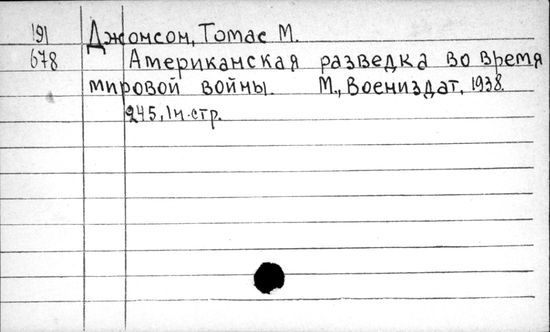 191 Джонсон, Томас М.
678 Американская разведка во время
мировой войны. М., Воениздат, 1938.
245, 1н. стр.